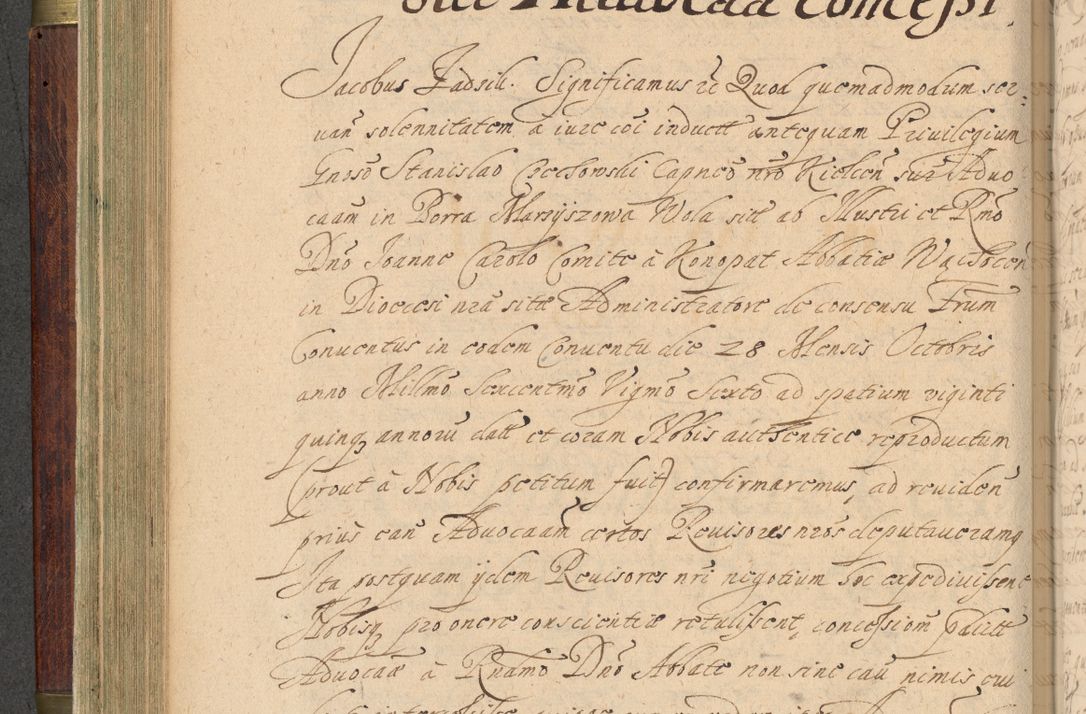 sitt Advocaa concessi.
Jacobus Zadsik. Significamus &c Quod quemadmodum ser-
uan solennitatem à iure coi induct antequam Priuilegium
Gnoso Stanislao Czechowski Capneo nro Kielcen sup Aduo
caam in Porra Marzyszowa Wola sitt ab Illustri et Rmo
Dno Joanne Carolo Comite à Konopat Abbatiæ Wachocen
in Dioecesi nra sittæ Administratore de consensu Frum
Conuentus in eodem Conuentu die 28 Mensis Octobris
anno Millmo Sexcentmo Vigmo Sexto ad spatium viginti
quinq annoru datt et coram Nobis authentice reproductum
(prout à Nobis petitum fuit) confirmaremus, ad reuiden
prius ean Aduocaam certos Reuisores nros deputaueramq
Ita postquam ydem Reuisores nri negotium hoc expediuissent
Nobisq pro onere conscientiæ retulissent, concessiom
Aduocaæ à Rndmo Dno Abbate non sine cau nimis cui